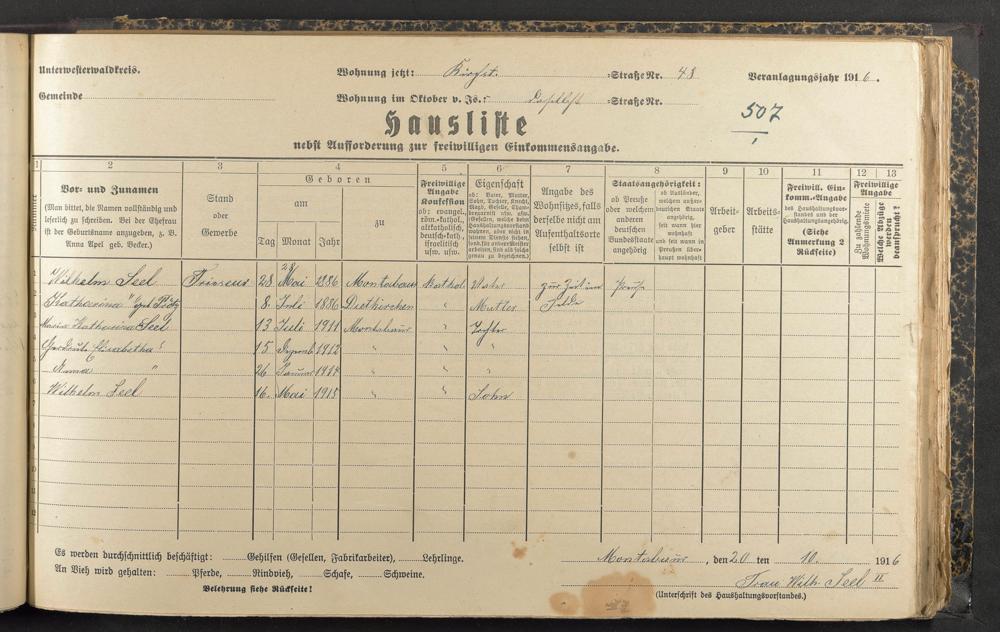 Unterwesterwaldkreis.
Wohnung jetzt: Kirchst. -Straße Nr. 48
Veranlagungsjahr 1916.
Gemeinde
Wohnung im Oktober v. Js.: daselbst -Straße Nr.
507
Hausliste
nebst Aufforderung zur freiwilligen Einkommensangabe.
1 2 3 4 5 6 7 8 9 10 11 12 13
Nummer
Vor- und Zunamen
(Man bittet, die Namen vollständig und
leserlich zu schreiben. Bei der Ehefrau
ist der Geburtsname anzugeben, z. B.
Anna Apel geb. Becker.)
Stand
oder
Gewerbe
Geboren
am
zu
Tag Monat Jahr
Freiwillige
Angabe
Konfession
ob: evangel.,
röm.-kathol.,
altkatholisch,
deutsch-kath.,
israelitisch
usw. usw.
Eigenschaft
ob: Vater, Mutter,
Sohn, Tochter, Knecht,
Magd, Geselle,
Angabe des
Wohnsitzes, falls
derselbe nicht am
Aufenthaltsorte
selbst ist
Staatsangehörigkeit:
ob Preuße
oder welchem
anderen
deutschen
Bundesstaate
angehörig
ob Ausländer,
welchem außer-
deutschen Staate
angehörig,
seit wann hier
wohnhaft
und seit wann in
Preußen über-
haupt wohnhaft
Arbeit-
geber
Arbeits-
stätte
Freiwill. Ein-
komm.-Angabe
des Haushaltungsvor-
standes und der
Haushaltungsangehörig.
(Siehe
Anmerkung 2
Rückseite)
Freiwillige
Angabe
Zu zahlende
Wohnungsmiete
Welche Abzüge
werden
beansprucht?
Wilhelm Seel Friseur 28 Mai 1886 Montabaur Kathol. Vater zur Zeit im Preuße
Katharina " geb. 8. Juli 1886 Dietkirchen " Mutter Felde
Maria Katharina Seel 13 Juli 1911 Montabaur " Tochter
Gertrude Elisabetha " 15 Dezemb 1912 " " "
Anna " 26 Januar 1914 " " "
Wilhelm Seel 16. Mai 1915 " " Sohn
Es werden durchschnittlich beschäftigt: Gehilfen (Gesellen, Fabrikarbeiter), Lehrlinge.
An Vieh wird gehalten: Pferde, Rindvieh, Schafe, Schweine.
Belehrung siehe Rückseite!
Montabaur, den 20 ten 10. 1916
Frau Wilh. Seel II
(Unterschrift des Haushaltungsvorstandes.)